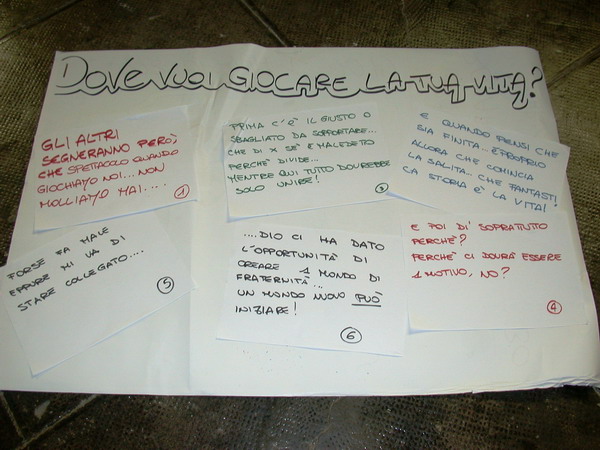 DOVE VUOI GIOCARE LA TUA VITA?
GLI ALTRI
SEGNERANNO PERÒ,
CHE SPETTACOLO QUANDO
GIOCHIAMO NOI... NON
MOLLIAMO MAI....
1
PRIMA C'È IL GIUSTO O
SBAGLIATO DA SOPPORTARE...
CHE DI X SÈ È MALEDETTO
PERCHÈ DIVIDE...
MENTRE QUI TUTTO DOVREBBE
SOLO UNIRE!
E QUANDO PENSI CHE
SIA FINITA.. È PROPRIO
ALLORA CHE COMINCIA
LA SALITA.. CHE FANTASTI
CA STORIA È LA VITA!
FORSE FA MALE
EPPURE MI VA DI
STARE COLLEGATO....
5
....DIO CI HA DATO
L'OPPORTUNITÀ DI
CREARE 1 MONDO DI
FRATERNITÀ...
UN MONDO NUOVO PUÒ
INIZIARE!
6
E POI DI' SOPRATTUTTO
PERCHÈ?
PERCHÈ CI DOVRÀ ESSERE
1 MOTIVO, NO?
4